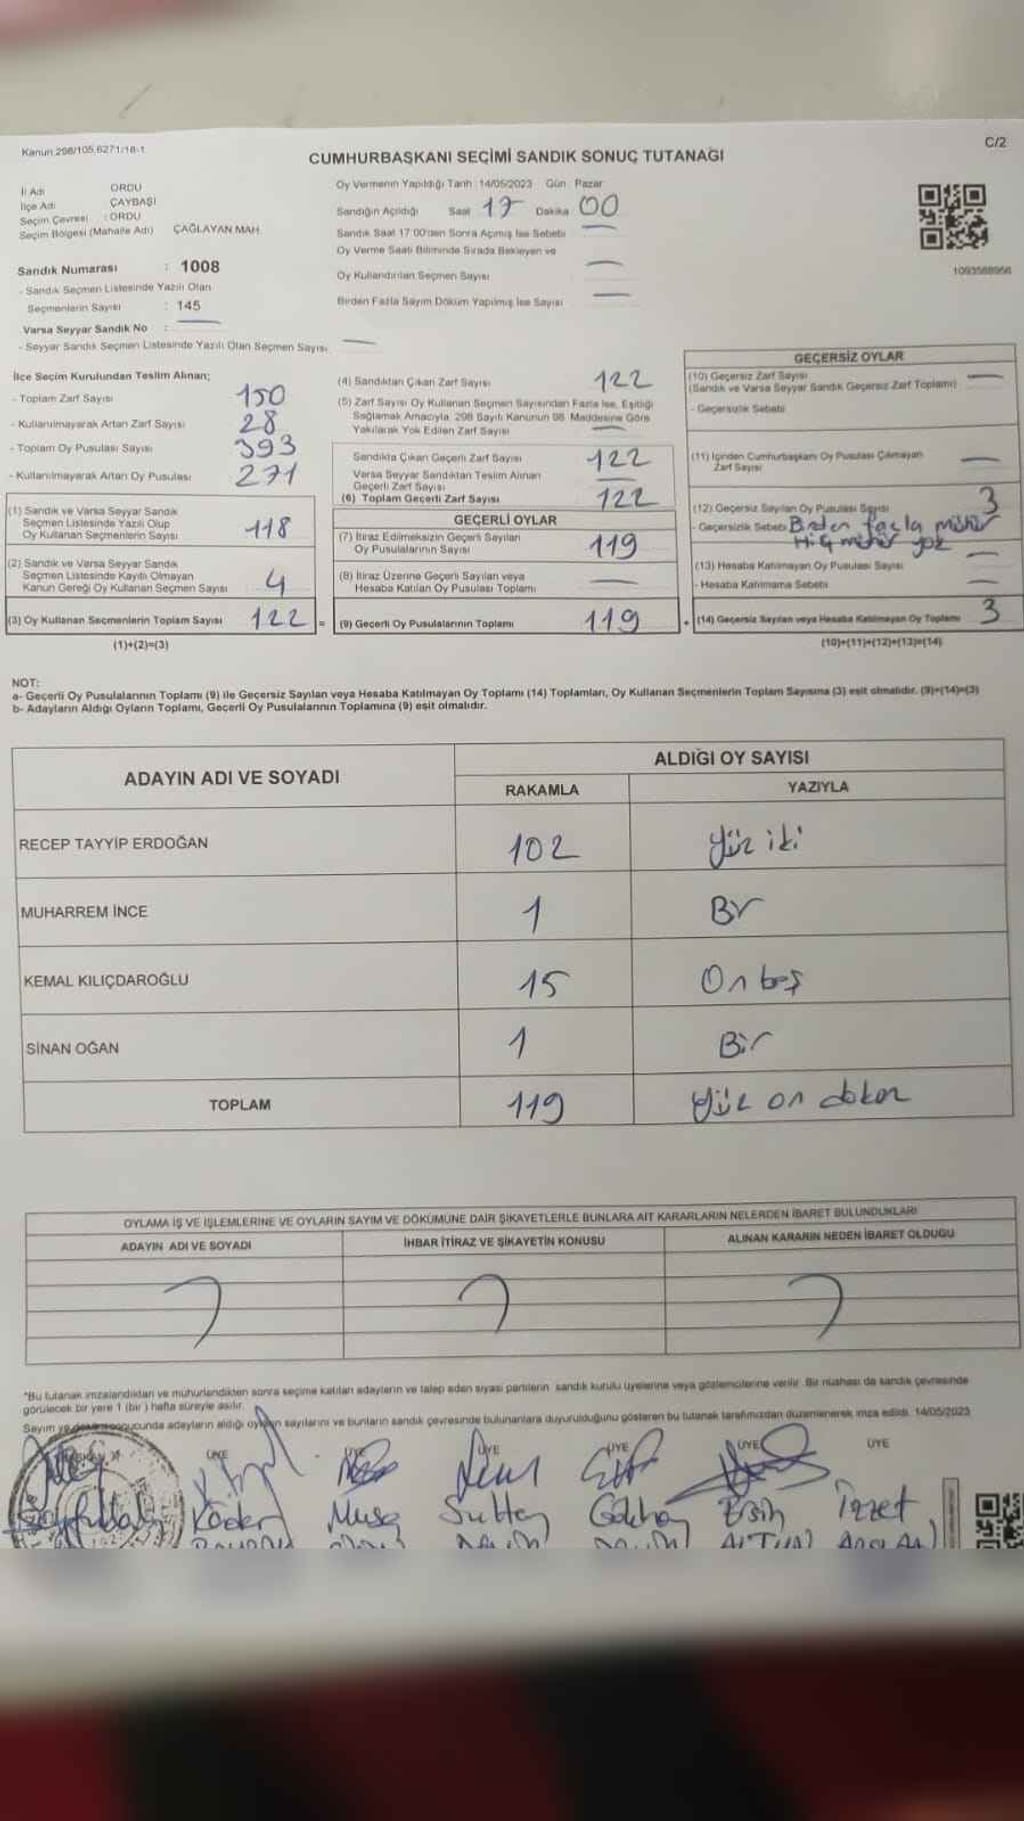 Kanun 298/105,6271/18-1
C/2
CUMHURBAŞKANI SEÇİMİ SANDIK SONUÇ TUTANAĞI
İl Adı ORDU
İlçe Adı ÇAYBAŞI
Seçim Çevresi : ORDU
Seçim Bölgesi (Mahalle Adı) ÇAĞLAYAN MAH.
Sandık Numarası : 1008
- Sandık Seçmen Listesinde Yazılı Olan
Seçmenlerin Sayısı : 145
Varsa Seyyar Sandık No : —
- Seyyar Sandık Seçmen Listesinde Yazılı Olan Seçmen Sayısı —
Oy Vermenin Yapıldığı Tarih : 14/05/2023 Gün : Pazar
Sandığın Açıldığı Saat 17 Dakika 00
Sandık Saat 17:00'den Sonra Açılmış İse Sebebi —
Oy Verme Saati Bitiminde Sırada Bekleyen ve
Oy Kullandırılan Seçmen Sayısı —
Birden Fazla Sayım Döküm Yapılmış İse Sayısı —
1093568956
İlçe Seçim Kurulundan Teslim Alınan;
- Toplam Zarf Sayısı 150
- Kullanılmayarak Artan Zarf Sayısı 28
- Toplam Oy Pusulası Sayısı 393
- Kullanılmayarak Artan Oy Pusulası 271
(1) Sandık ve Varsa Seyyar Sandık
Seçmen Listesinde Yazılı Olup
Oy Kullanan Seçmenlerin Sayısı 118
(2) Sandık ve Varsa Seyyar Sandık
Seçmen Listesinde Kayıtlı Olmayan
Kanun Gereği Oy Kullanan Seçmen Sayısı 4
(3) Oy Kullanan Seçmenlerin Toplam Sayısı 122 =
(1)+(2)=(3)
(4) Sandıktan Çıkan Zarf Sayısı 122
(5) Zarf Sayısı Oy Kullanan Seçmen Sayısından Fazla İse, Eşitliği
Sağlamak Amacıyla, 298 Sayılı Kanunun 98. Maddesine Göre
Yakılarak Yok Edilen Zarf Sayısı —
Sandıkta Çıkan Geçerli Zarf Sayısı 122
Varsa Seyyar Sandıktan Teslim Alınan
Geçerli Zarf Sayısı —
(6) Toplam Geçerli Zarf Sayısı 122
GEÇERLİ OYLAR
(7) İtiraz Edilmeksizin Geçerli Sayılan
Oy Pusulalarının Sayısı 119
(8) İtiraz Üzerine Geçerli Sayılan veya
Hesaba Katılan Oy Pusulası Toplamı —
(9) Geçerli Oy Pusulalarının Toplamı 119 +
GEÇERSİZ OYLAR
(10) Geçersiz Zarf Sayısı —
(Sandık ve Varsa Seyyar Sandık Geçersiz Zarf Toplamı)
- Geçersizlik Sebebi
(11) İçinden Cumhurbaşkanı Oy Pusulası Çıkmayan
Zarf Sayısı —
(12) Geçersiz Sayılan Oy Pusulası Sayısı 3
- Geçersizlik Sebebi Birden fazla mühür
Hiç mühür yok
(13) Hesaba Katılmayan Oy Pusulası Sayısı —
- Hesaba Katılmama Sebebi —
(14) Geçersiz Sayılan veya Hesaba Katılmayan Oy Toplamı 3
(10)+(11)+(12)+(13)=(14)
NOT:
a- Geçerli Oy Pusulalarının Toplamı (9) ile Geçersiz Sayılan veya Hesaba Katılmayan Oy Toplamı (14) Toplamları, Oy Kullanan Seçmenlerin Toplam Sayısına (3) eşit olmalıdır. (9)+(14)=(3)
b- Adayların Aldığı Oyların Toplamı, Geçerli Oy Pusulalarının Toplamına (9) eşit olmalıdır.
ADAYIN ADI VE SOYADI ALDIĞI OY SAYISI
RAKAMLA YAZIYLA
RECEP TAYYİP ERDOĞAN 102 Yüz iki
MUHARREM İNCE 1 Bir
KEMAL KILIÇDAROĞLU 15 On beş
SİNAN OĞAN 1 Bir
TOPLAM 119 Yüz on dokuz
OYLAMA İŞ VE İŞLEMLERİNE VE OYLARIN SAYIM VE DÖKÜMÜNE DAİR ŞİKAYETLERLE BUNLARA AİT KARARLARIN NELERDEN İBARET BULUNDUKLARI
ADAYIN ADI VE SOYADI İHBAR İTİRAZ VE ŞİKAYETİN KONUSU ALINAN KARARIN NEDEN İBARET OLDUĞU
"Bu tutanak imzalandıktan ve mühürlendikten sonra seçime katılan adayların ve talep eden siyasi partilerin sandık kurulu üyelerine veya gözlemcilerine verilir. Bir nüshası da sandık çevresinde
görülecek bir yere 1 (bir) hafta süreyle asılır.
Sayım ve sonucunda adayların aldığı oyların sayılarını ve bunların sandık çevresinde bulunanlara duyurulduğunu gösteren bu tutanak tarafımızdan düzenlenerek imza edildi. 14/05/2023
ÜYE ÜYE ÜYE ÜYE ÜYE ÜYE
Kader Musa Sultan Gökhan Ersin İzzet